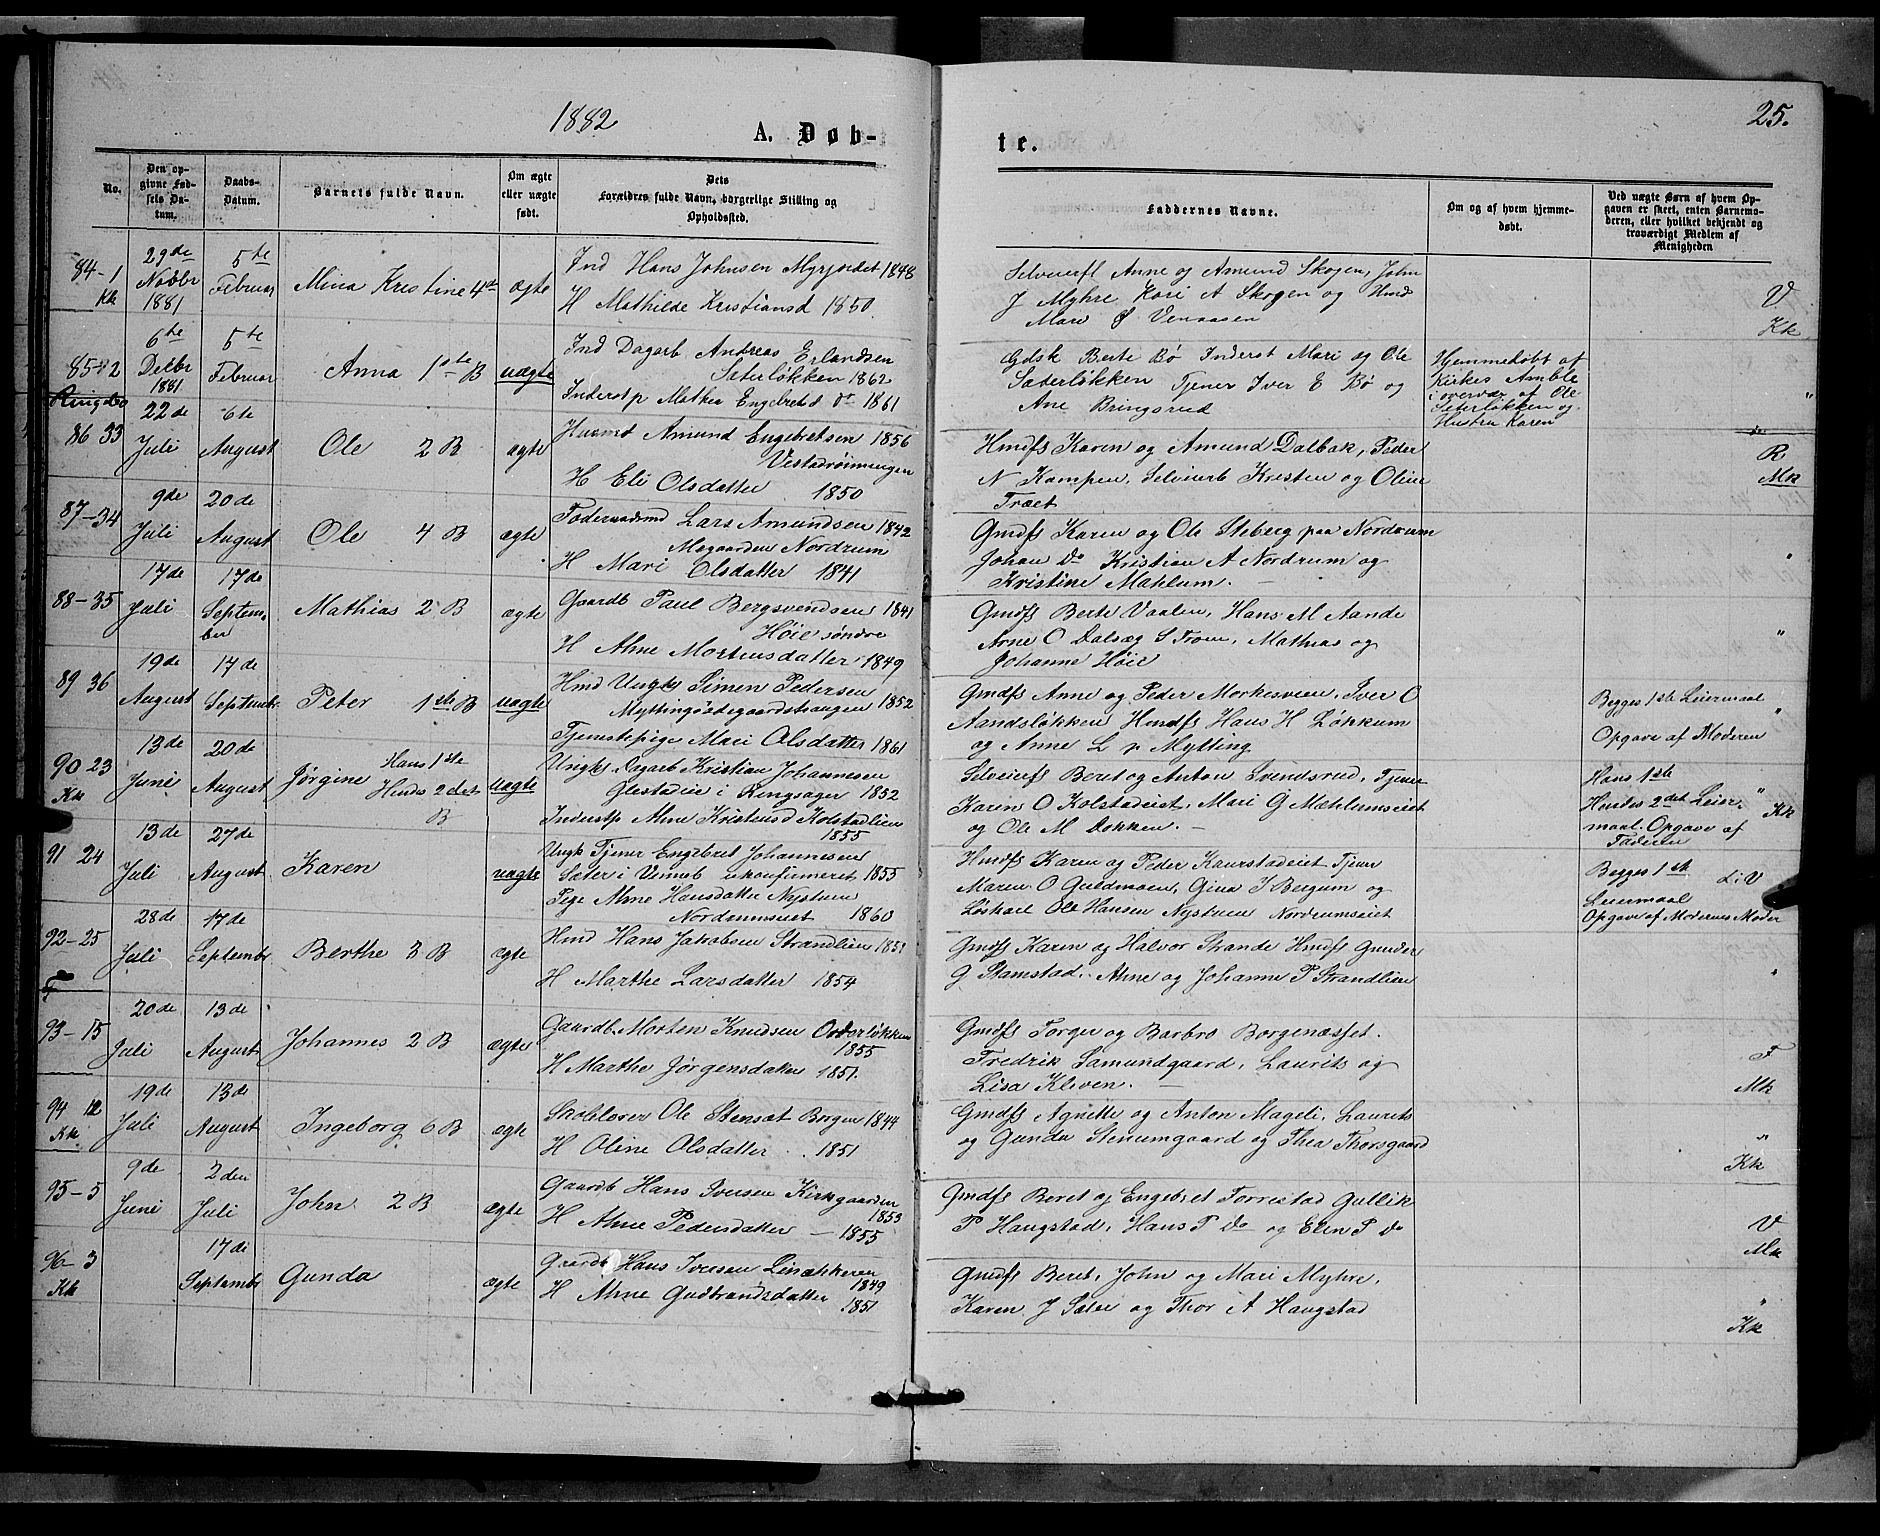 1882
A. Døb-
te.
25.
No.
Den op-
givne Fød-
sels Da-
tum.
Daabs-
Datum.
Barnets fulde Navn.
Om ægte
eller uægte
født.
Dets
Forældres fulde Navn, borgerlige Stilling og
Opholdssted.
Faddernes Navne.
Om og af hvem hjemme-
døbt.
Ved uægte Børn af hvem Op-
gaven er skeet, enten Barnemo-
deren, eller hvilket bekjendt og
troværdigt Medlem af
Menigheden
84-1
Kk
29de
Novbr
1881
5te
Februar
Mina Kristine 4de
ægte
Ind Hans Johnsen Myrjordet 1848
H Mathilde Kristiansd 1850.
Selveierfl Anne og Amund Skogen, John
J Myhre Kari A Skogen og Hmd
Mari Ø Venaasen
V
Kk
85-2
Ringebo
6te
Decbr
1881
5te
Februar
Anna 1ste B
uægte
Ind Dagarb Andreas Erlandsen
Sæterløkken 1862
Inderstp Mathea Engebretsd do 1861
Gdsk Berte Bø Inderst Mari og Ole
Sæterløkken Tjener Iver E Bø og
Ane Bringsrud
Hjemmedøbt af
Kirkes. Amble
i overvær af Ole
Sæterløkken og
Hustru Karen
"
86 33
22de
Juli
6te
August
Ole 2 B
ægte
Husmd Amund Engebretsen 1856
Vestadrønningen
H Eli Olsdatter 1850
Hmdfs Karen og Amund Dalbak, Peder
N Kampen, Selveierb Kristen og Oline
Træet
R
Mk
87-34
9de
Juli
20de
August
Ole 4 B
ægte
Føderaadsmd Lars Amundsen 1842
Mogaarden Nordrum
H Mari Olsdatter 1841
Gmdfs Karen og Ole Steberg paa Nordrum
Johan Do Kristian A Nordrum og
Kristine Mæhlum. -
"
88-35
17de
Juli
17de
Septem-
ber
Mathias 2 B
ægte
Gaardb Paul Bergsvendsen 1841
Høie søndre
H Ahne Mortensdatter 1849
Gmdfs Berte Vaalen, Hans M Aande
Arne O Dalsæg S Troen, Mathias og
Johanne Høie
"
89 36
19de
August
17de
Septembr
Peter 1ste B
uægte
Hmd Ungk Simen Pedersen
Myttingødegaardshaugen 1852
Tjenestepige Mari Olsdatter 1861
Gmdfs Anne og Peder Morkesveen, Iver O
Aandsløkken Hmdfs Hans H Løkkum
og Anne L p Mytting
Begges 1ste Leiermaal
Opgave af Moderen
"
90 23
Kk
13de
Juni
20de
August
Jørgine
Hans 1ste
Hendes 2det
B
uægte
Ungk Dagarb Kristian Johannesen
Glestadeie i Ringsager 1852
Inderstp Ahne Kristensd Kolstadlien
1855
Selveierfs Beret og Anton Svendsrud, Tjener
Karen O Kolstadeiet, Mari G Mæhlumseiet
og Ole M Dokken. -
Hans 1ste
Hendes 2det Leier-
maal. Opgave af
Faderen
"
Kk
91 24
13de
Juli
27de
August
Karen
uægte
Ungk Tjener Engebret Johannesen
Sæter i Venneb ukonfirmeret 1855
Pige Ahne Hansdatter Nystuen
Nordrumseiet 1860
Hmdfs Karen og Peder Kaurstadeiet Tjener
Maren O Guldmoen, Gina J Bergum og
Løskarl Ole Hansen Nystuen Nordrumseiet
Begges 1ste
Leiermaal
Opgave af Modernes Moder
L:V
92-25
F
28de
Juli
17de
Septembr
Berthe 3 B
ægte
Hmd Hans Jakobsen Strandlien 1851
H Marthe Larsdatter 1854
Gmdfs Karen og Halvor Strande Hmdfs Gunder
G Stamstad. Ahne og Johanne P Strandlien
"
93-15
20de
Juli
13de
August
Johannes 2 B
ægte
Gaardb. Morten Knudsen Odderløkken
1855
H Marthe Jørgensdatter 1851.
Gmdfs Torger og Barbro Borgenæsset.
Fredrik Samundgaard, Laurits og
Lisa Kleven. -
F
Mk
94 12
Kk
19de
Juli
13de
August
Ingeborg 6 B
ægte
Skolelærer Ole Stensæt Borgen 1844
H Oline Olsdatter . . 1851
Gmdfs Agnette og Anton Mageli, Laurits
og Gunda Stenumgaard og Thea Thorsgaard
"
Kk
95-5
9de
Juni
2den
Juli
John 2 B
ægte
Gaardb Hans Iversen Kirkgaarden
1853
H Ahne Pedersdatter - 1855
Gmdfs Beret og Engebret Forrestad Gullik
P Haugstad, Hans P Do og Elen P Do
V
Mk
96-3
Kk
17de
Septembr
Gunda
ægte
Gaardb Hans Iversen Linækkeren
1849
H Ahne Gudbrandsdatter
1851
Gmdfs Beret, John og Mari Myhre,
Karen J Sæter og Thor A Haugstad
"
Kk